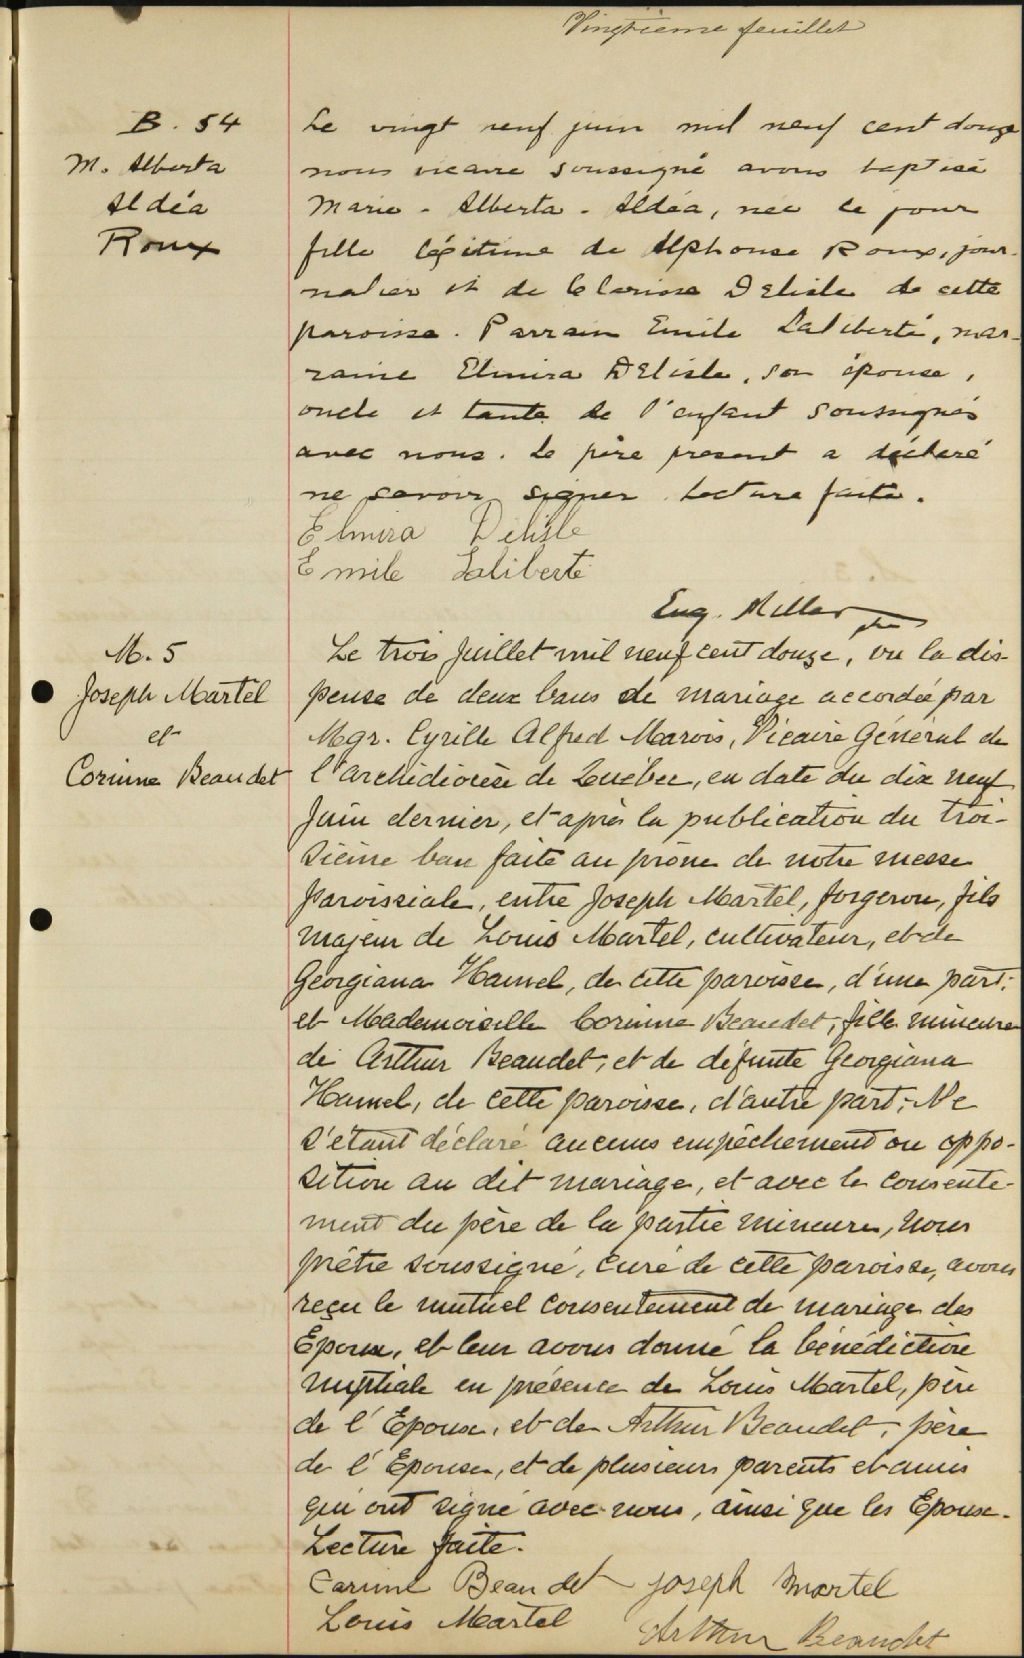 Vingtième feuillet
B. 54
M. Alberta
Aldéa
Roux
Le vingt neuf juin mil neuf cent douze
nous vicaire soussigné avons baptisé
Marie-Alberta-Aldéa, née ce jour
fille légitime de Alphonse Roux, jour-
nalier et de Clarisse Delisle de cette
paroisse. Parrain Emile Laliberté, mar-
raine Elmira Delisle, son épouse,
oncle et tante de l'enfant soussignés
avec nous. Le père présent a déclaré
ne savoir signer. Lecture faite.
Elmira Delisle
Emile Laliberté
Eug. Miller ptre
M. 5
Joseph Martel
et
Corinne Beaudet
Le trois Juillet mil neuf cent douze, vu la dis-
pense de deux bans de mariage accordée par
Mgr. Cyrille Alfred Marois, Vicaire Général de
l'archidiocèse de Québec, en date du dix neuf
Juin dernier, et après la publication du troi-
sième ban faite au prône de notre messe
paroissiale, entre Joseph Martel, forgeron, fils
majeur de Louis Martel, cultivateur, et de
Georgiana Hamel, de cette paroisse, d'une part;
et Mademoiselle Corinne Beaudet, fille mineure
de Arthur Beaudet, et de défunte Georgiana
Hamel, de cette paroisse, d'autre part; Ne
s'étant déclaré aucuns empêchement ou oppo-
sition au dit mariage, et avec le consente-
ment du père de la partie mineure, Nous
prêtre soussigné, curé de cette paroisse, avons
reçu le mutuel consentement de mariage des
Epoux, et leur avons donné la bénédiction
nuptiale en présence de Louis Martel, père
de l'Epoux, et de Arthur Beaudet, père
de l'Epouse, et de plusieurs parents et amis
qui ont signé avec nous, ainsi que les Epoux.
Lecture faite.
Carinne Beaudet Joseph Martel
Louis Martel Arthur Beaudet